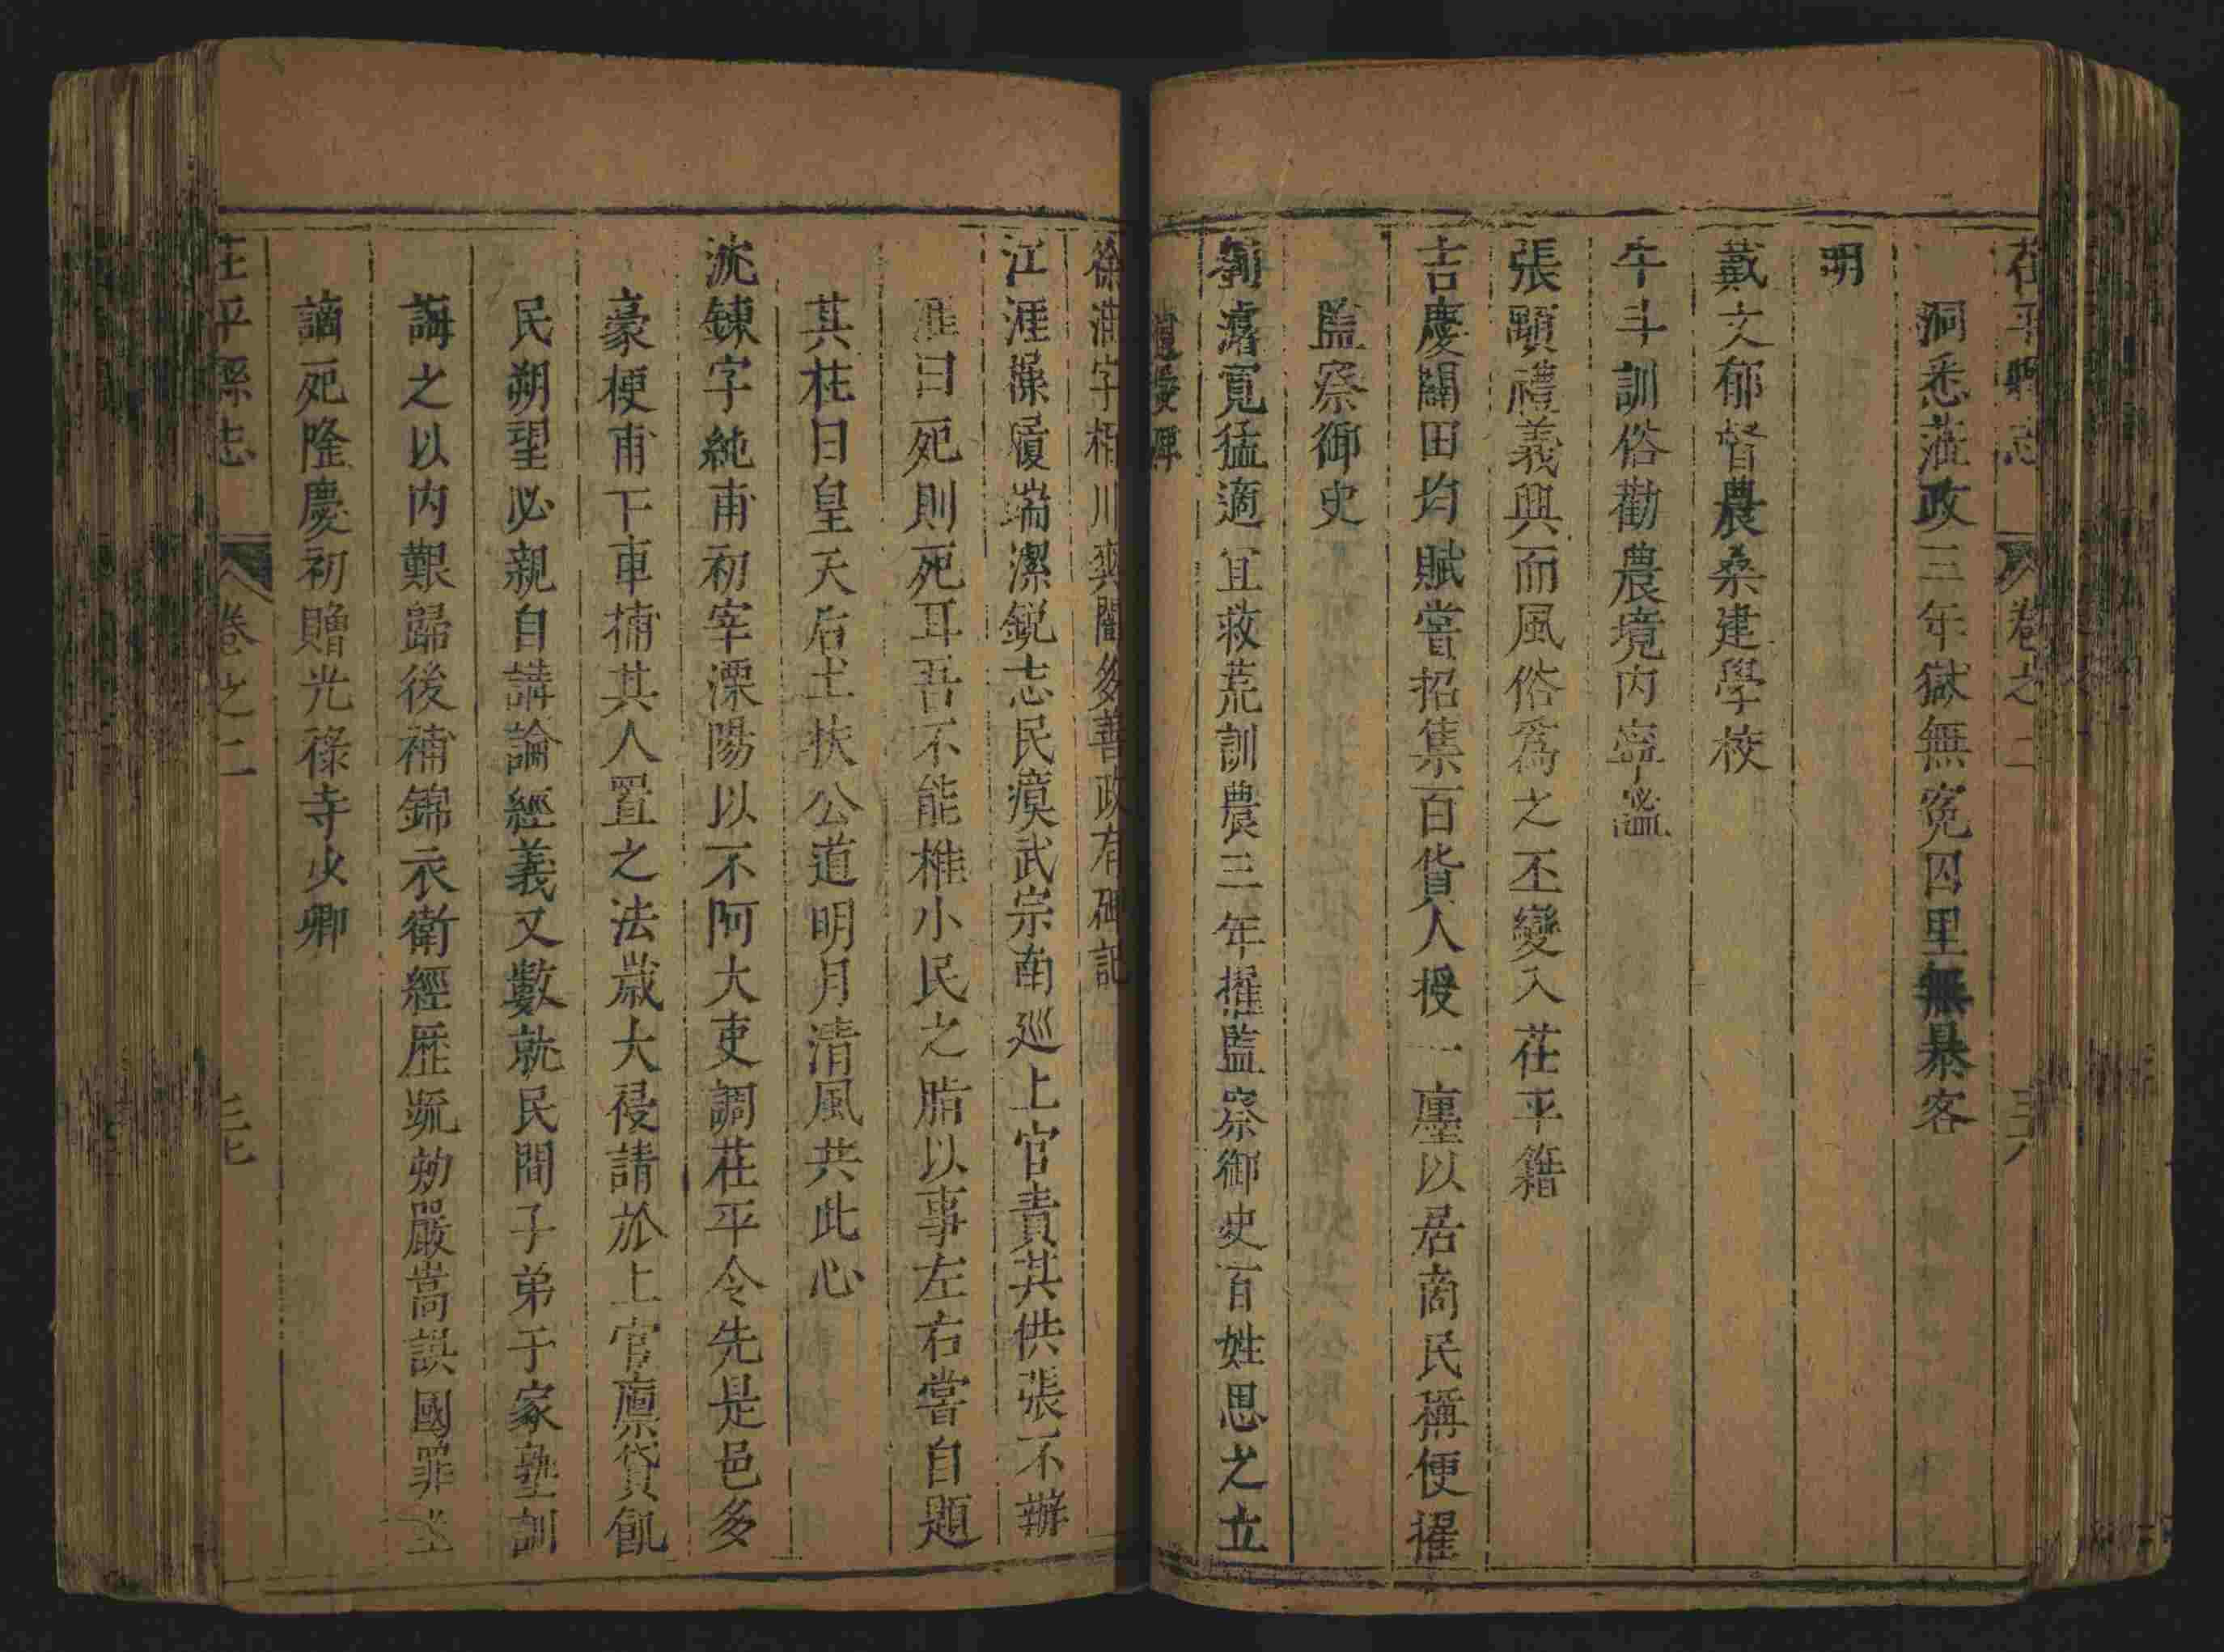 茌平縣志 卷之二 三六
洞悉蒞政三年獄無冤囚里無暴客
明
戴文郁督農桑建學校
牛斗訓俗勸農境内寧謐
張顯禮義興而風俗爲之丕變入茌平籍
吉慶闢田均賦嘗招集百貨人授一廛以居商民稱便擢
監察御史
濬寛猛適宜救荒訓農三年擢監察御史百姓思之立
遺愛碑
徐字栢川爽闓多善政有碑記
江涯操履端潔鋭志民瘼武宗南廵上官責其供張不辦
涯曰死則死耳吾不能椎小民之脂以事左右嘗自題
其柱曰皇天后土扶公道明月清風共此心
沈鍊字純甫初宰溧陽以不阿大吏調茌平令先是邑多
豪梗甫下車捕其人置之法歲大祲請於上官廪貸飢
民朔望必親自講論經義又數就民間子弟于家塾訓
誨之以内艱歸後補錦衣衛經歷疏劾嚴嵩誤國罪坐
謫死隆慶初贈光祿寺少卿
茌平縣志 卷之二 三七